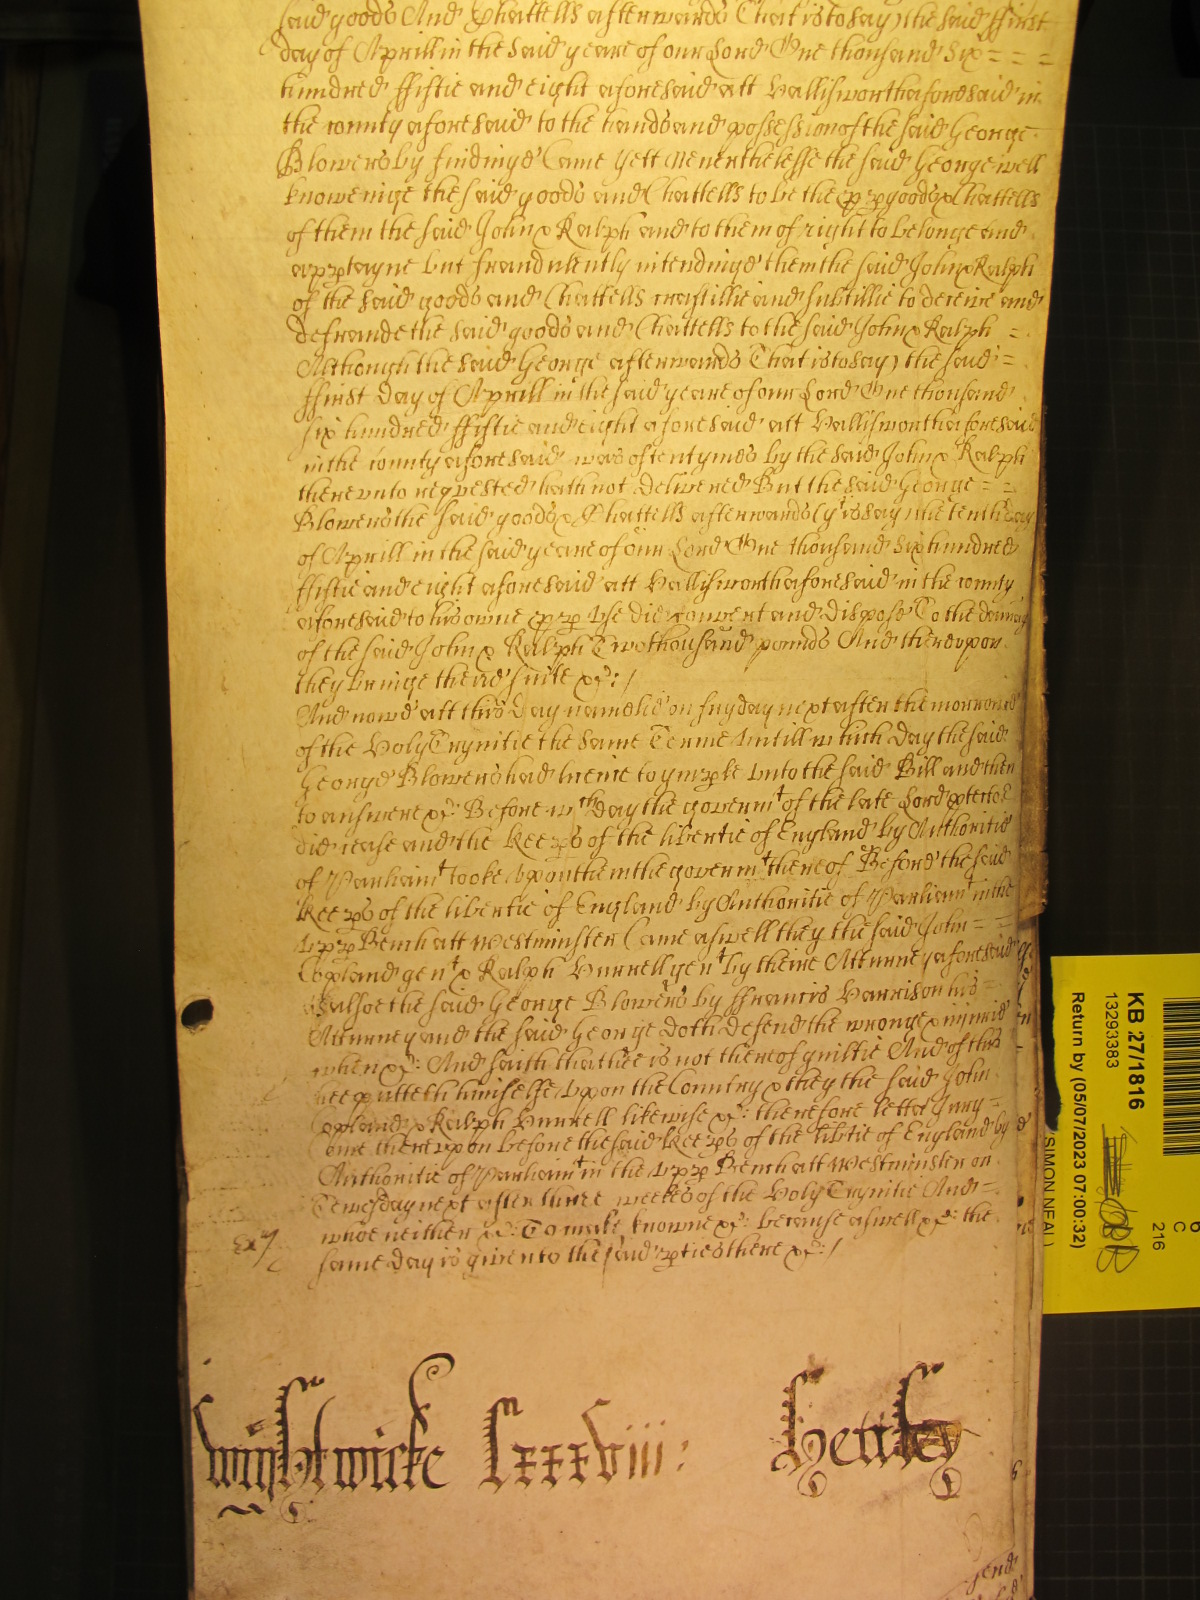 said goods And Chattells afterwards That is to say, the said ffirst
day of Aprill in the said yeare of our Lord One thousand Six = = =
hundred ffiftie and eight aforesaid att Hallisworth aforesaid in
the county aforesaid to the hands and possession of the said George
Blowers by findinge Came Yett Neverthelesse the said George well
knoweinge the said goods and Chattells to be the ꝑꝑ goods & Chattells
of them the said John & Ralph and to them of right to belonge and
appꝑtayne but fraudulently intendinge them the said John & Ralph
of the said goods and Chattells craftillie and subtillie to deceive and
defraude the said goods and Chattells to the said John & Ralph =
Although the said George afterwards That is to say) the said =
ffirst day of Aprill in the said yeare of our Lord One thousand
six hundred ffiftie and eight aforesaid att Hallisworth aforesaid
in the county aforesaid was oftentymes by the said John & Ralph
therevnto requested hath not delivered But the said George = =
Blowers the said goods & Chattells afterwards (yt is say) the tenth day
of Aprill in the said yeare of our Lord One thousand Six hundred
ffiftie and eight aforesaid att Hallisworth aforesaid in the county
aforesaid to his owne ꝑꝑ vse did convert and dispose To the damag
of the said John & Ralph Two thousand pounds And therevpon
they bringe theire suite &c: /
And nowe att this Day namelie on fryday next after the morrowe
of the Holy Trynitie the same Terme vntill which Day the said
George Blowers had licence to ymꝑle vnto the said Bill and then
to answere &c: Before wch day the governmt of the late Lord ꝓtector
did cease and the Keeꝑs of the libertie of England by Authoritie
of Parliamt tooke vpon them the governmt thereof Before the said
Keeꝑs of the libertie of England by Authoritie of Parliamt in the
vpꝑ Bench att Westminster Came aswell they the said John = =
Copland gent & Ralph Hurrell gent by theire Atturney aforesaid
as alsoe the said George Blowers by ffrancis Harrison his =
Atturney and the said George doth defend the wronge & iniurie
when &c: And saith that hee is not thereof guiltie And of this
hee putteth himselfe vpon the Country & they the said John
Copland & Ralph Hurrell likewise &c: therefore lett a Jury =
Come therevpon before the said Keeꝑs of the libtie of England by
Authoritie of Parliamt in the vpꝑ Bench att Westminster on
Tewsday next after three weekes of the Holy Trynitie And =
whoe neither &c: To make knowne &c: because aswell &c: the
same day is given to the said ꝑties there &c: /
Wightwicke Lxxxviii: Henley
KB 27/1816
13293383
Return by (05/07/2023 07:00:32)
(SIMON NEAL)
6
C
216